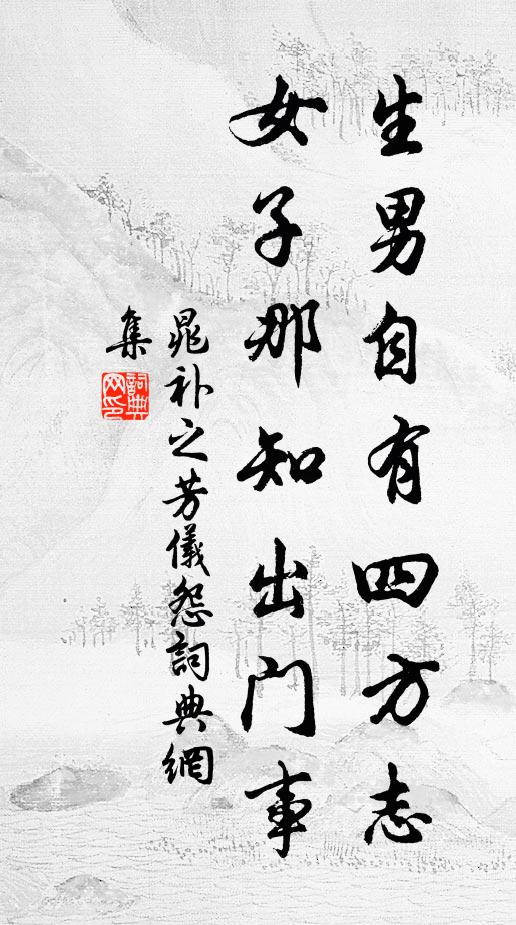 生男自有四方志
女子那知出门事
晁补之芳儀怨詞典網
集
詞典
网印